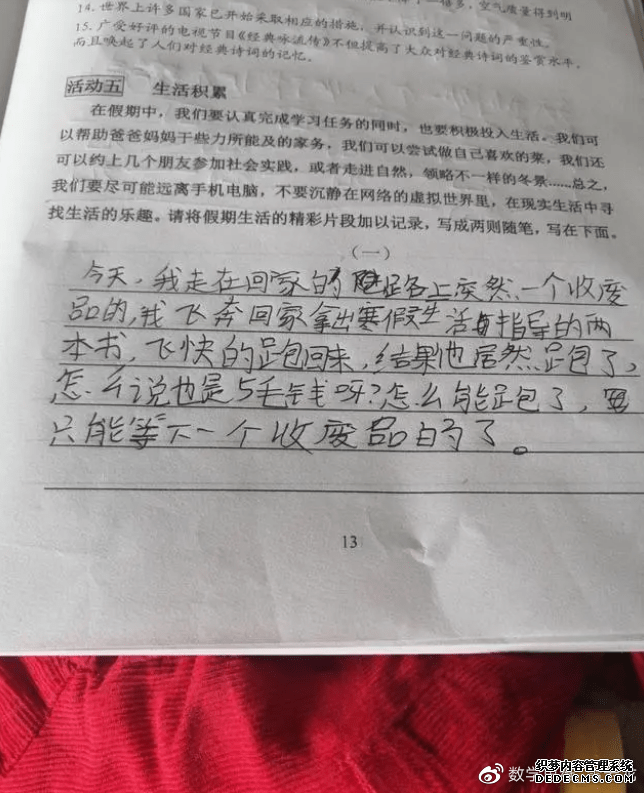 14. 世界上许多国家已开始采取相应的措施，并认识到这一问题的严重性。
15. 广受好评的电视节目《经典咏流传》不但提高了大众对经典诗词的鉴赏水平，
而且唤起了人们对经典诗词的记忆。
活动五 生活积累
在假期中，我们要认真完成学习任务的同时，也要积极投入生活。我们可
以帮助爸爸妈妈干些力所能及的家务，我们可以尝试做自己喜欢的菜，我们还
可以约上几个朋友参加社会实践，或者走进自然，领略不一样的冬景……总之，
我们要尽可能远离手机电脑，不要沉静在网络的虚拟世界里，在现实生活中寻
找生活的乐趣。请将假期生活的精彩片段加以记录，写成两则随笔，写在下面。
（一）
今天，我走在回家的路上突然一个收废
品的，我飞奔回家拿出寒假生活指导的两
本书，飞快的跑回来，结果他居然跑了，
怎么说也是5毛钱呀？怎么能跑了，
只能等下一个收废品的了。
13
数学
织梦内容管理系统
DEDECMS.COM